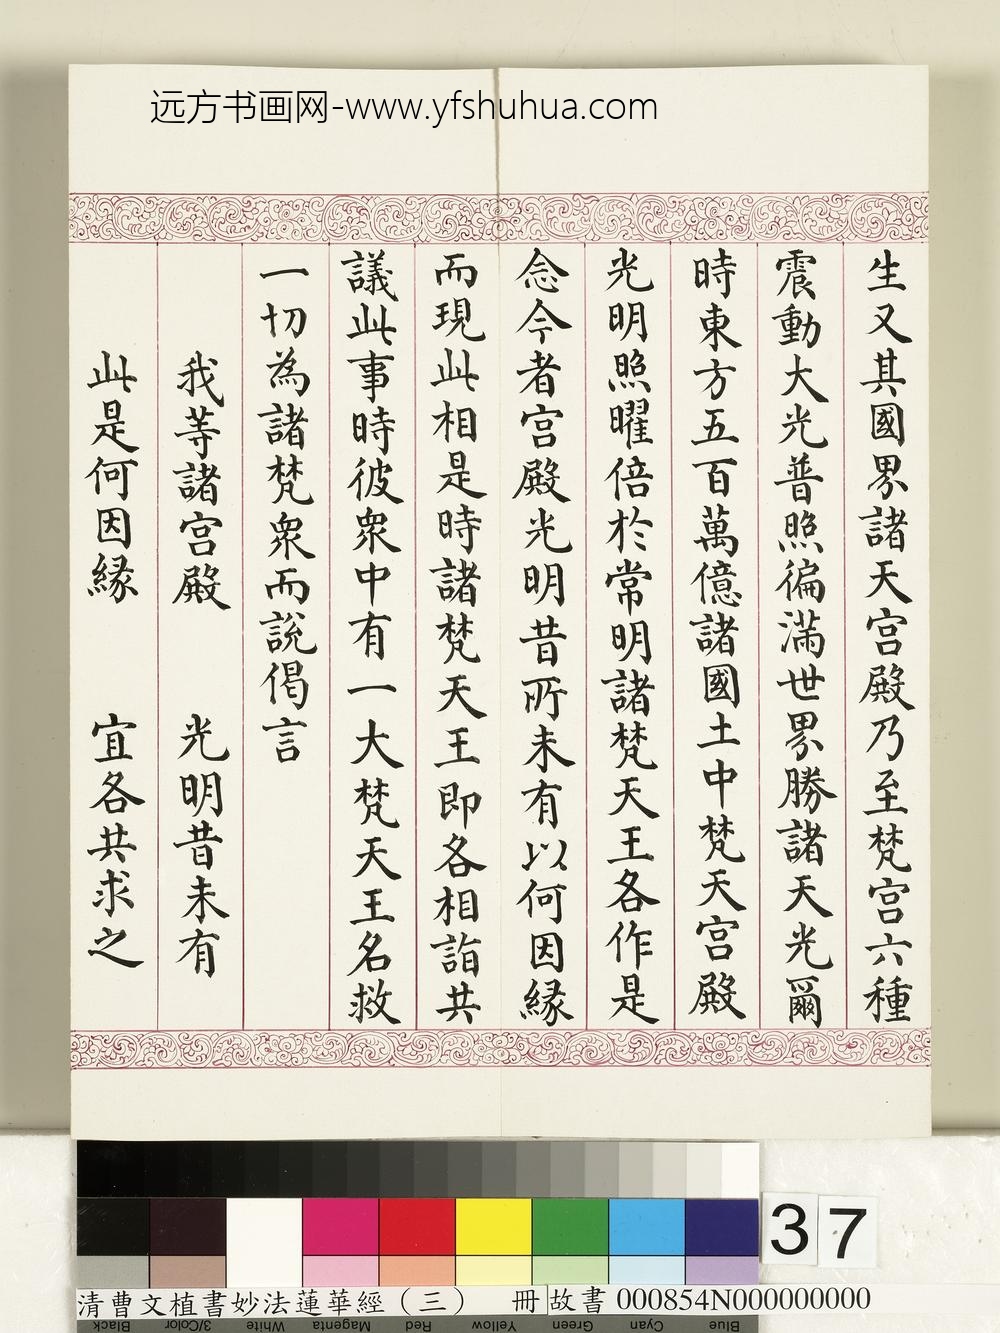 远方书画网-www.yfshuhua.com
生又其國界諸天宫殿乃至梵宫六種
震動大光普照徧滿世界勝諸天光爾
時東方五百萬億諸國土中梵天宫殿
光明照曜倍於常明諸梵天王各作是
念今者宫殿光明昔所未有以何因緣
而現此相是時諸梵天王即各相詣共
議此事時彼衆中有一大梵天王名救
一切為諸梵衆而説偈言
我等諸宫殿 光明昔未有
此是何因緣 宜各共求之
37
清曹文植書妙法蓮華經（三） 冊 故書 000854N000000000
Black 3/Color White Magenta Red Yellow Green Cyan Blue